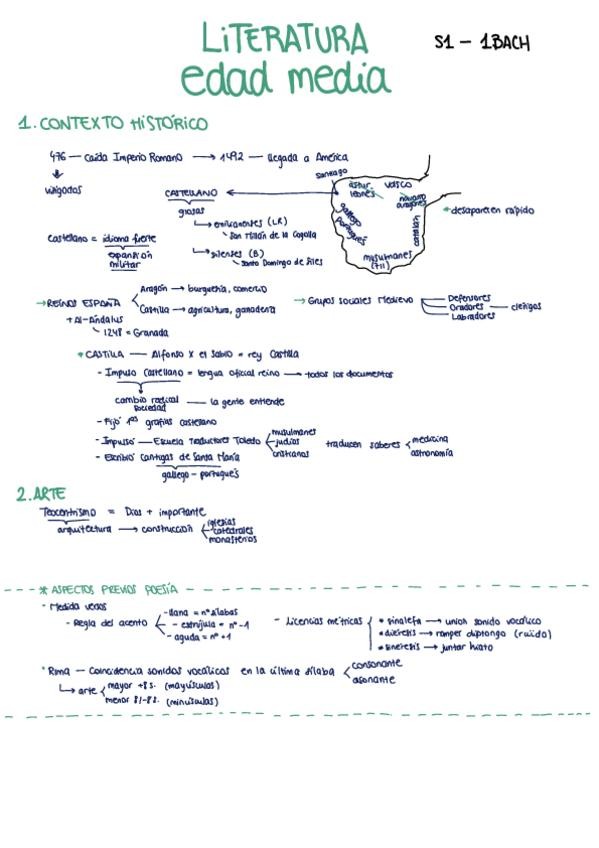 LITERATURA
edad media
S1 - 1BACH
1. CONTEXTO HISTÓRICO
476 — Caída Imperio Romano → 1492 — llegada a América
↓
visigodos
CASTELLANO
glosas
→ emilianenses (LR)
San Millán de la Cogolla
→ silenses (B)
Santo Domingo de Silos
Castellano = idioma fuerte
expansión
militar
santiago
astur.
leonés
vasco
navarro
aragonés
gallego
portugués
catalán
musulmanes
(711)
* desaparecen rápido
→ REINOS ESPAÑA
Aragón → burguesía, comercio
Castilla → agricultura, ganadería
+ Al-Ándalus
1248 = Granada
→ Grupos sociales Medievo
Defensores
Oradores — clérigos
Labradores
* CASTILLA — Alfonso X el Sabio = rey Castilla
- Impulso Castellano = lengua oficial reino → todos los documentos
cambio radical
sociedad
— la gente entiende
- Fijó 1as grafías castellano
- Impulsó — Escuela Traductores Toledo
musulmanes
judíos
cristianos
traducen saberes
medicina
astronomía
- Escribió Cantigas de Santa María
gallego - portugués
2. ARTE
Teocentrismo = Dios + importante
arquitectura → construcción
iglesias
catedrales
monasterios
* ASPECTOS PREVIOS POESÍA
- Medida versos
- Regla del acento
- llana = nº sílabas
- esdrújula = nº -1
- aguda = nº +1
- Licencias métricas
* sinalefa → unión sonido vocálico
* diéresis → romper diptongo (ruido)
* sinéresis → juntar hiato
* Rima — Coincidencia sonidos vocálicos en la última sílaba
consonante
asonante
→ arte
mayor +8 s. (mayúsculas)
menor 8/-8 s. (minúsculas)